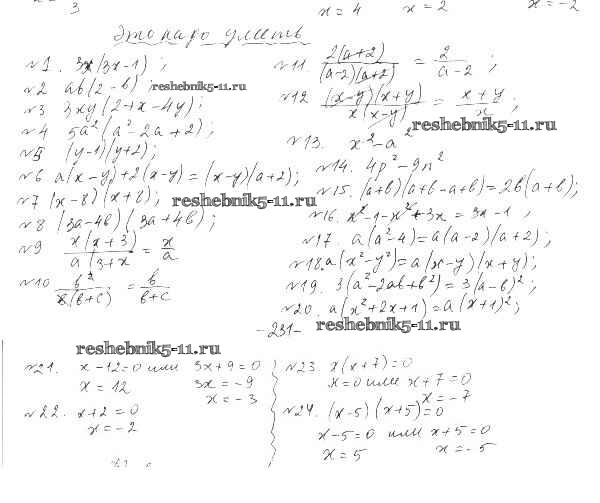 3
x = 4 x = 2 x = -2
Это надо уметь
№1. 3x(3x-1);
№2 ab(2-b)
reshebnik5-11.ru
№3 3xy(2+x-4y);
№4 5a²(a²-2a+2);
№5 (y-1)(y+2);
№6 a(x-y)+2(x-y)=(x-y)(a+2);
№7 (x-8)(x+8);
reshebnik5-11.ru
№8 (3a-4b)(3a+4b);
№9 x(x+3)/a(3+x) = x/a
№10 b²/b(b+c) = b/b+c
№11. 2(a+2)/(a-2)(a+2) = 2/a-2;
№12 (x-y)(x+y)/x(x-y) = x+y/x;
reshebnik5-11.ru
№13. x²-a²
№14. 4p²-9n²
№15. (a+b)(a+b-a+b)=2b(a+b);
№16. x²-1-x²+3x=3x-1;
№17. a(a²-4)=a(a-2)(a+2);
№18. a(x²-y²)=a(x-y)(x+y);
№19. 3(a²-2ab+b²)=3(a-b)²;
№20. a(x²+2x+1)=a(x+1)²;
-231-
reshebnik5-11.ru
reshebnik5-11.ru
№21. x-12=0 или 3x+9=0
x=12 3x=-9
x=-3
№22. x+2=0
x=-2
№23. x(x+7)=0
x=0 или x+7=0
x=-7
№24. (x-5)(x+5)=0
x-5=0 или x+5=0
x=5 x=-5